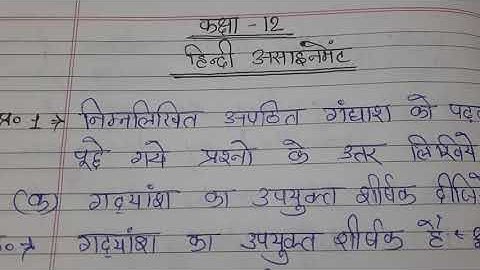 कक्षा - 12
हिन्दी असाइनमेंट
प्र० 1 → निम्नलिखित अपठित गंधाश को पढ़
पूछे गये प्रश्नो के उतर लिखिये
(क) गद्यांश का उपयुक्त शीर्षक दीजि
गद्यांश का उपयुक्त शीर्षक है